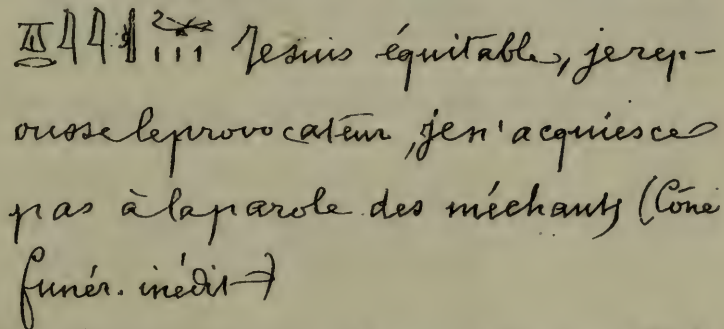 Je suis équitable, je rep-
ousse le provocateur, je n'acquiesce
pas à la parole des méchants (Cône
funér. inédit)